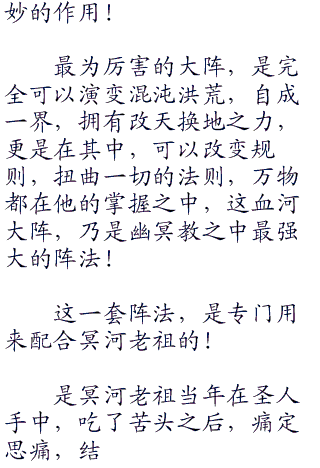 妙的作用！
最为厉害的大阵，是完
全可以演变混沌洪荒，自成
一界，拥有改天换地之力，
更是在其中，可以改变规
则，扭曲一切的法则，万物
都在他的掌握之中，这血河
大阵，乃是幽冥教之中最强
大的阵法！
这一套阵法，是专门用
来配合冥河老祖的！
是冥河老祖当年在圣人
手中，吃了苦头之后，痛定
思痛，结